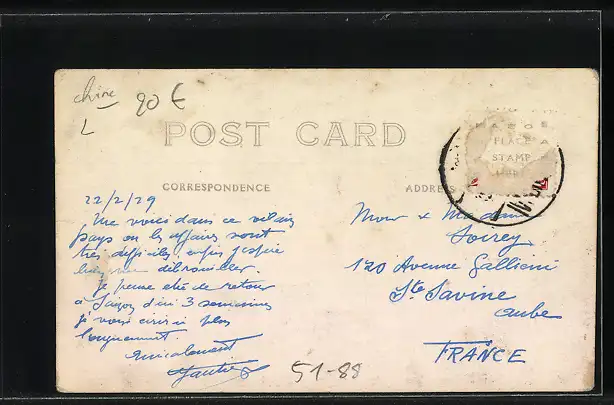 chine 90 €
L
POST CARD
PLACE
STAMP
HERE
CORRESPONDENCE
ADDRESS
22/2/29
Me voici dans ce vilain
pays ou les affaires sont
très difficiles, enfin j'espère
bien me débrouiller.
Je pense être de retour
à Saigon d'ici 3 semaines
je vous écrirai plus
longuement.
Amicalement
Gautier
Mons & Madame
Soirey
120 Avenue Gallieni
Ste Savine
Aube
FRANCE
51-88